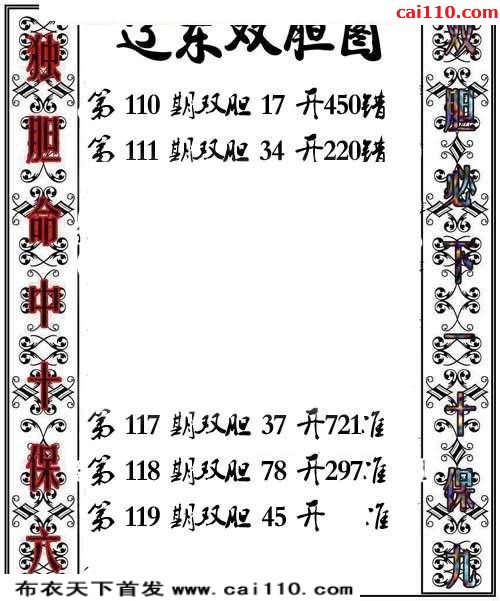 cai110.com
辽东双胆图
独胆命中十保六
第 110 期双胆 17 开450错
第 111 期双胆 34 开220错
第 117 期双胆 37 开721准
第 118 期双胆 78 开297准
第 119 期双胆 45 开 准
双胆必下一十保九
布衣天下首发 www.cai110.com